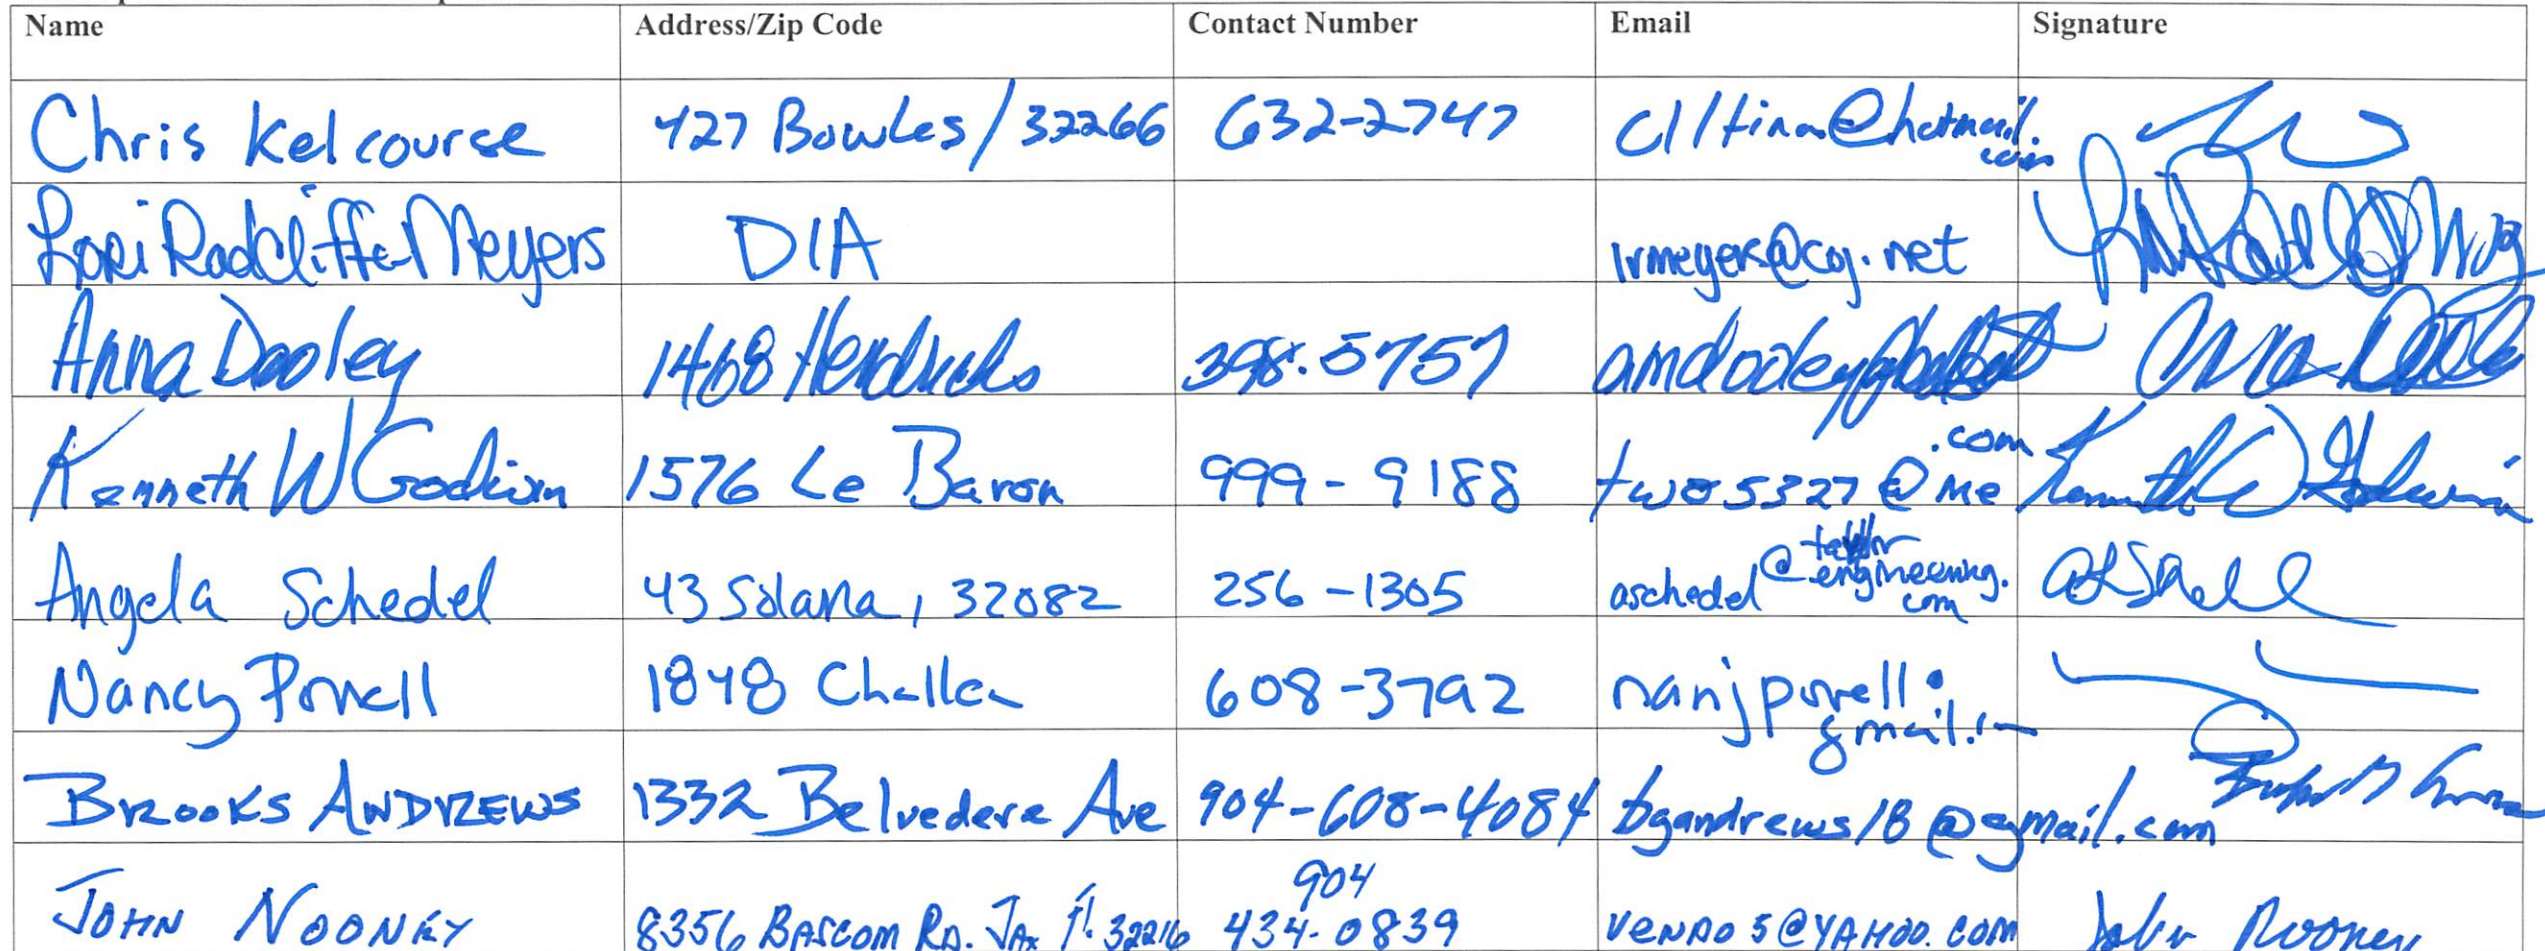 Name Address/Zip Code Contact Number Email Signature
Chris Kelcourse 427 Bowles/32266 632-2747 @hotmail.
com
Lori Radcliffe-Meyers DIA lrmeyers@coj.net
Anna Dooley 1468 Hendricks 398.5757
Kenneth W Godwin 1576 Le Baron 999-9188 two5327@me
.com
Angela Schedel 43 Solana, 32082 256-1305 aschedel@taylor
engineering.
com
Nancy Powell 1848 Challen 608-3792 nanjpowell
gmail.
Brooks ANDREWS 1332 Belvedere Ave 904-608-4084 bgandrews18@gmail.com
904
JOHN NOONEY 8356 BASCOM RD. JAX fl. 32216 434-0839 VENDO5@YAHOO.COM